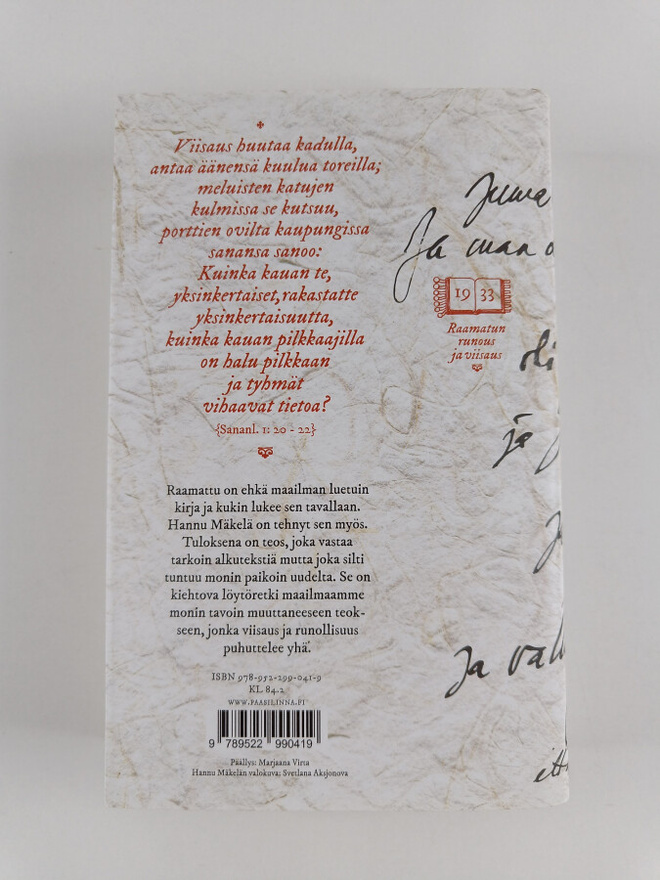 Viisaus huutaa kadulla,
antaa äänensä kuulua toreilla;
meluisten katujen
kulmissa se kutsuu,
porttien ovilta kaupungissa
sanansa sanoo:
Kuinka kauan te,
yksinkertaiset, rakastatte
yksinkertaisuutta,
kuinka kauan pilkkaajilla
on halu pilkkaan
ja tyhmät
vihaavat tietoa?
{Sananl. 1: 20 - 22}
Raamattu on ehkä maailman luetuin
kirja ja kukin lukee sen tavallaan.
Hannu Mäkelä on tehnyt sen myös.
Tuloksena on teos, joka vastaa
tarkoin alkutekstiä mutta joka silti
tuntuu monin paikoin uudelta. Se on
kiehtova löytöretki maailmaamme
monin tavoin muuttaneeseen teok-
seen, jonka viisaus ja runollisuus
puhuttelee yhä.
ISBN 978-952-299-041-9
KL 84.2
WWW.PAASILINNA.FI
9 789522 990419
Päällys: Marjaana Virta
Hannu Mäkelän valokuva: Svetlana Aksjonova
Juma
Ja maa o
19 33
Raamatun
runous
ja viisaus
oli
ja
Ja val